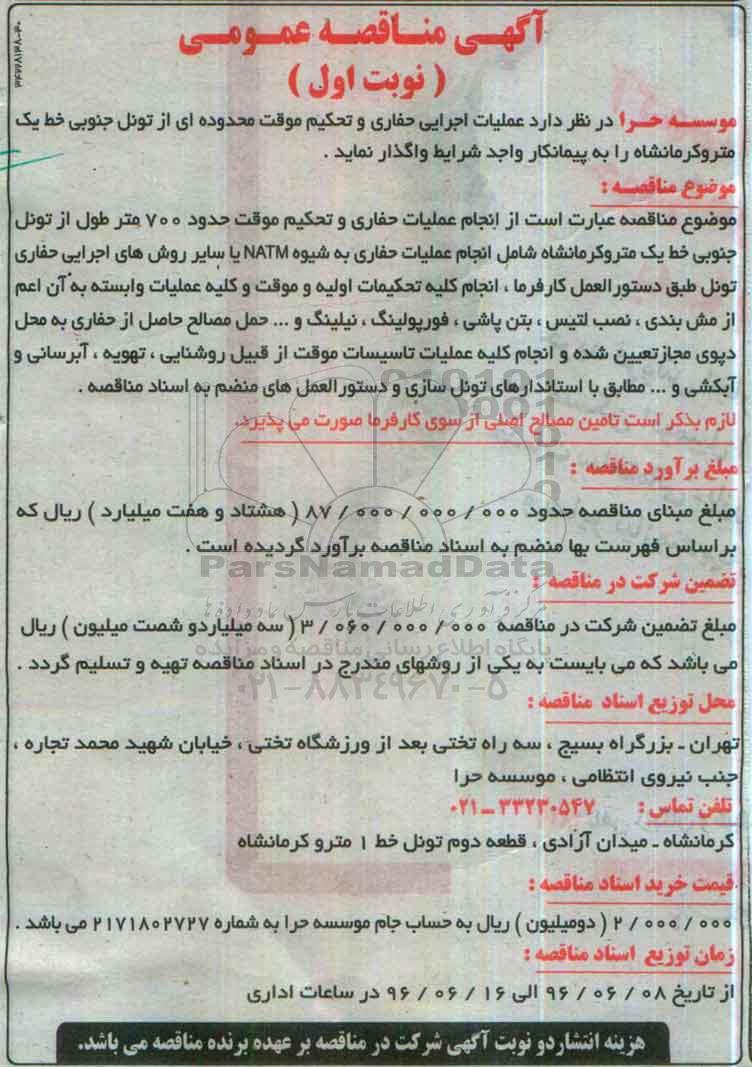 آگهی مناقصه عمومی
( نوبت اول )
موسسه حرا در نظر دارد عملیات اجرایی حفاری و تحکیم موقت محدوده ای از تونل جنوبی خط یک
متروکرمانشاه را به پیمانکار واجد شرایط واگذار نماید .
موضوع مناقصه :
موضوع مناقصه عبارت است از انجام عملیات حفاری و تحکیم موقت حدود ۷۰۰ متر طول از تونل
جنوبی خط یک متروکرمانشاه شامل انجام عملیات حفاری به شیوه NATM یا سایر روش های اجرایی حفاری
تونل طبق دستورالعمل کارفرما ، انجام کلیه تحکیمات اولیه و موقت و کلیه عملیات وابسته به آن اعم
از مش بندی ، نصب لتیس ، بتن پاشی ، فورپولینگ ، نیلینگ و ... حمل مصالح حاصل از حفاری به محل
دپوی مجازتعیین شده و انجام کلیه عملیات تاسیسات موقت از قبیل روشنایی ، تهویه ، آبرسانی و
آبکشی و ... مطابق با استاندارهای تونل سازی و دستورالعمل های منضم به اسناد مناقصه .
لازم بذکر است تامین مصالح اصلی از سوی کارفرما صورت می پذیرد.
مبلغ برآورد مناقصه :
مبلغ مبنای مناقصه حدود ۸۷/۰۰۰/۰۰۰/۰۰۰ ( هشتاد و هفت میلیارد ) ریال که
براساس فهرست بها منضم به اسناد مناقصه برآورد گردیده است .
ParsNamadData
تضمین شرکت در مناقصه :
مرکز فرآوری اطلاعات پارس نماد داده ها
مبلغ تضمین شرکت در مناقصه ۳/۰۶۰/۰۰۰/۰۰۰ ( سه میلیاردو شصت میلیون ) ریال
پایگاه اطلاع رسانی مناقصه و مزایده
می باشد که می بایست به یکی از روشهای مندرج در اسناد مناقصه تهیه و تسلیم گردد .
۰۲۱-۸۸۳۴۹۶۷۰-۵
محل توزیع اسناد مناقصه :
تهران ـ بزرگراه بسیج ، سه راه تختی بعد از ورزشگاه تختی ، خیابان شهید محمد تجاره ،
جنب نیروی انتظامی ، موسسه حرا
تلفن تماس : ۳۳۲۳۰۵۴۷ ـ ۰۲۱
کرمانشاه ـ میدان آزادی ، قطعه دوم تونل خط ۱ مترو کرمانشاه
قیمت خرید اسناد مناقصه :
۲/۰۰۰/۰۰۰ ( دومیلیون ) ریال به حساب جام موسسه حرا به شماره ۲۱۷۱۸۰۲۷۲۷ می باشد .
زمان توزیع اسناد مناقصه :
از تاریخ ۹۶/۰۶/۰۸ الی ۹۶/۰۶/۱۶ در ساعات اداری
هزینه انتشاردو نوبت آگهی شرکت در مناقصه بر عهده برنده مناقصه می باشد.